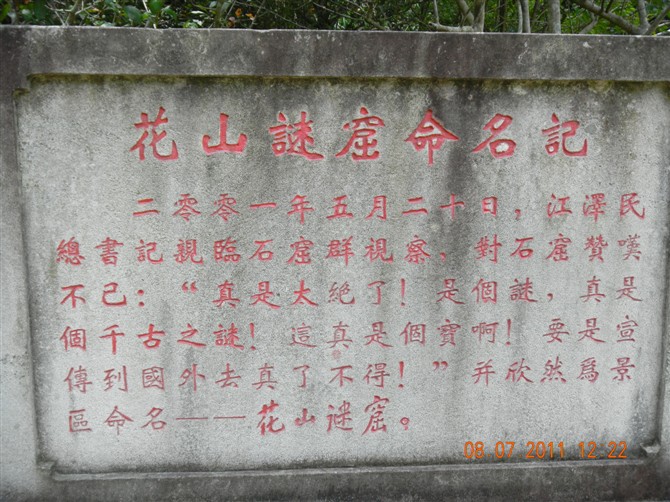 花山謎窟命名記
二零零一年五月二十日，江澤民
總書記親臨石窟群視察，對石窟贊嘆
不已：“真是太絶了！是個謎，真是
個千古之謎！這真是個寶啊！要是宣
傳到國外去真了不得！”并欣然爲景
區命名——花山谜窟。
08 07 2011 12 22